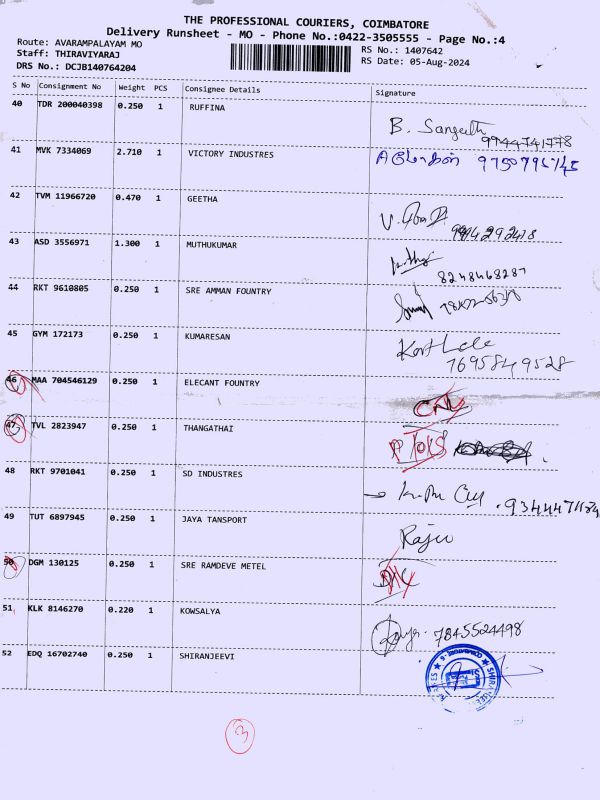 THE PROFESSIONAL COURIERS, COIMBATORE
Delivery Runsheet - MO - Phone No.:0422-3505555 - Page No.:4
Route: AVARAMPALAYAM MO
Staff: THIRAVIYARAJ
DRS No.: DCJB140764204
RS No.: 1407642
RS Date: 05-Aug-2024
S No Consignment No Weight PCS Consignee Details Signature
40 TDR 200040398 0.250 1 RUFFINA
B. Sangeeth
9944741778
41 MVK 7334069 2.710 1 VICTORY INDUSTRES
9750796745
42 TVM 11966720 0.470 1 GEETHA
43 ASD 3556971 1.300 1 MUTHUKUMAR
8248468287
44 RKT 9610805 0.250 1 SRE AMMAN FOUNTRY
45 GYM 172173 0.250 1 KUMARESAN
7695849528
46 MAA 704546129 0.250 1 ELECANT FOUNTRY
47 TVL 2823947 0.250 1 THANGATHAI
48 RKT 9701041 0.250 1 SD INDUSTRES
49 TUT 6897945 0.250 1 JAYA TANSPORT
Raju
50 DGM 130125 0.250 1 SRE RAMDEVE METEL
51 KLK 8146270 0.220 1 KOWSALYA
7845524498
52 EDQ 16702740 0.250 1 SHIRANJEEVI
3